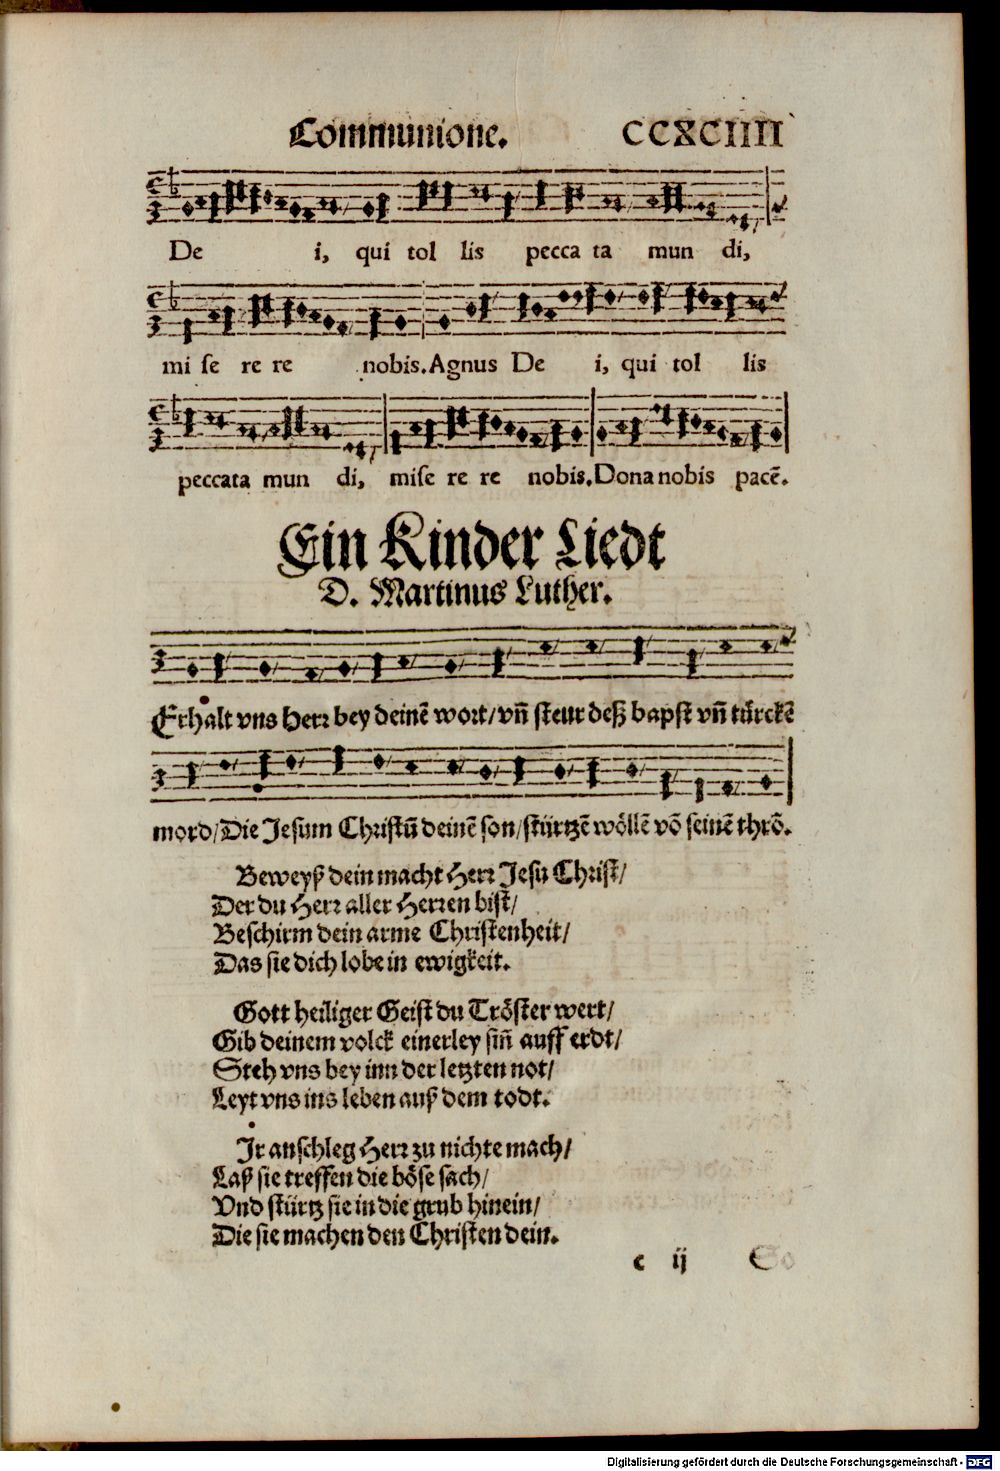 Communione. CCXCIIII
De i, qui tol lis pecca ta mun di,
mi se re re nobis. Agnus De i, qui tol lis
peccata mun di, mise re re nobis. Dona nobis pacē.
Ein Kinder Liedt
D. Martinus Luther.
Erhalt vns Herr bey deinē wort/ vñ steur deß bapst vñ türckē
mord/ Die Jesum Christū deinē son/ stürtzē wöllē võ seinē thrõ.
Beweyß dein macht Herr Jesu Christ/
Der du Herr aller Herren bist/
Beschirm dein arme Christenheit/
Das sie dich lobe in ewigkeit.
Gott heiliger Geist du Tröster wert/
Gib deinem volck einerley siñ auff erdt/
Steh vns bey inn der letzten not/
Leyt vns ins leben auß dem todt.
Jr anschleg Herr zu nichte mach/
Laß sie treffen die böse sach/
Vnd stürtz sie in die grub hinein/
Die sie machen den Christen dein.
c ij So
Digitalisierung gefördert durch die Deutsche Forschungsgemeinschaft - DFG